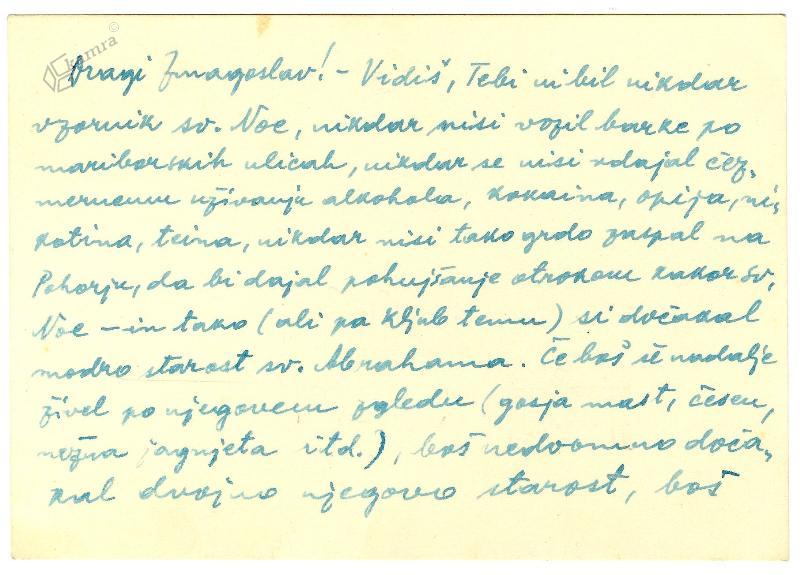 kamra
Dragi Zmagoslav! - Vidiš, Tebi ni bil nikdar
vzornik sv. Noe, nikdar nisi vozil barke po
mariborskih ulicah, nikdar se nisi vdajal čez-
mernemu uživanju alkohola, kokaina, opija, ni-
kotina, teina, nikdar nisi tako grdo zaspal na
Pohorju, da bi dajal pohujšanje otrokom kakor sv.
Noe – in tako (ali pa kljub temu) si dočakal
modro starost sv. Abrahama. Če boš še nadalje
živel po njegovem zgledu (gosja mast, česen,
nežna jagnjeta itd.), boš nedvomno doča-
kal dvojno njegovo starost, boš